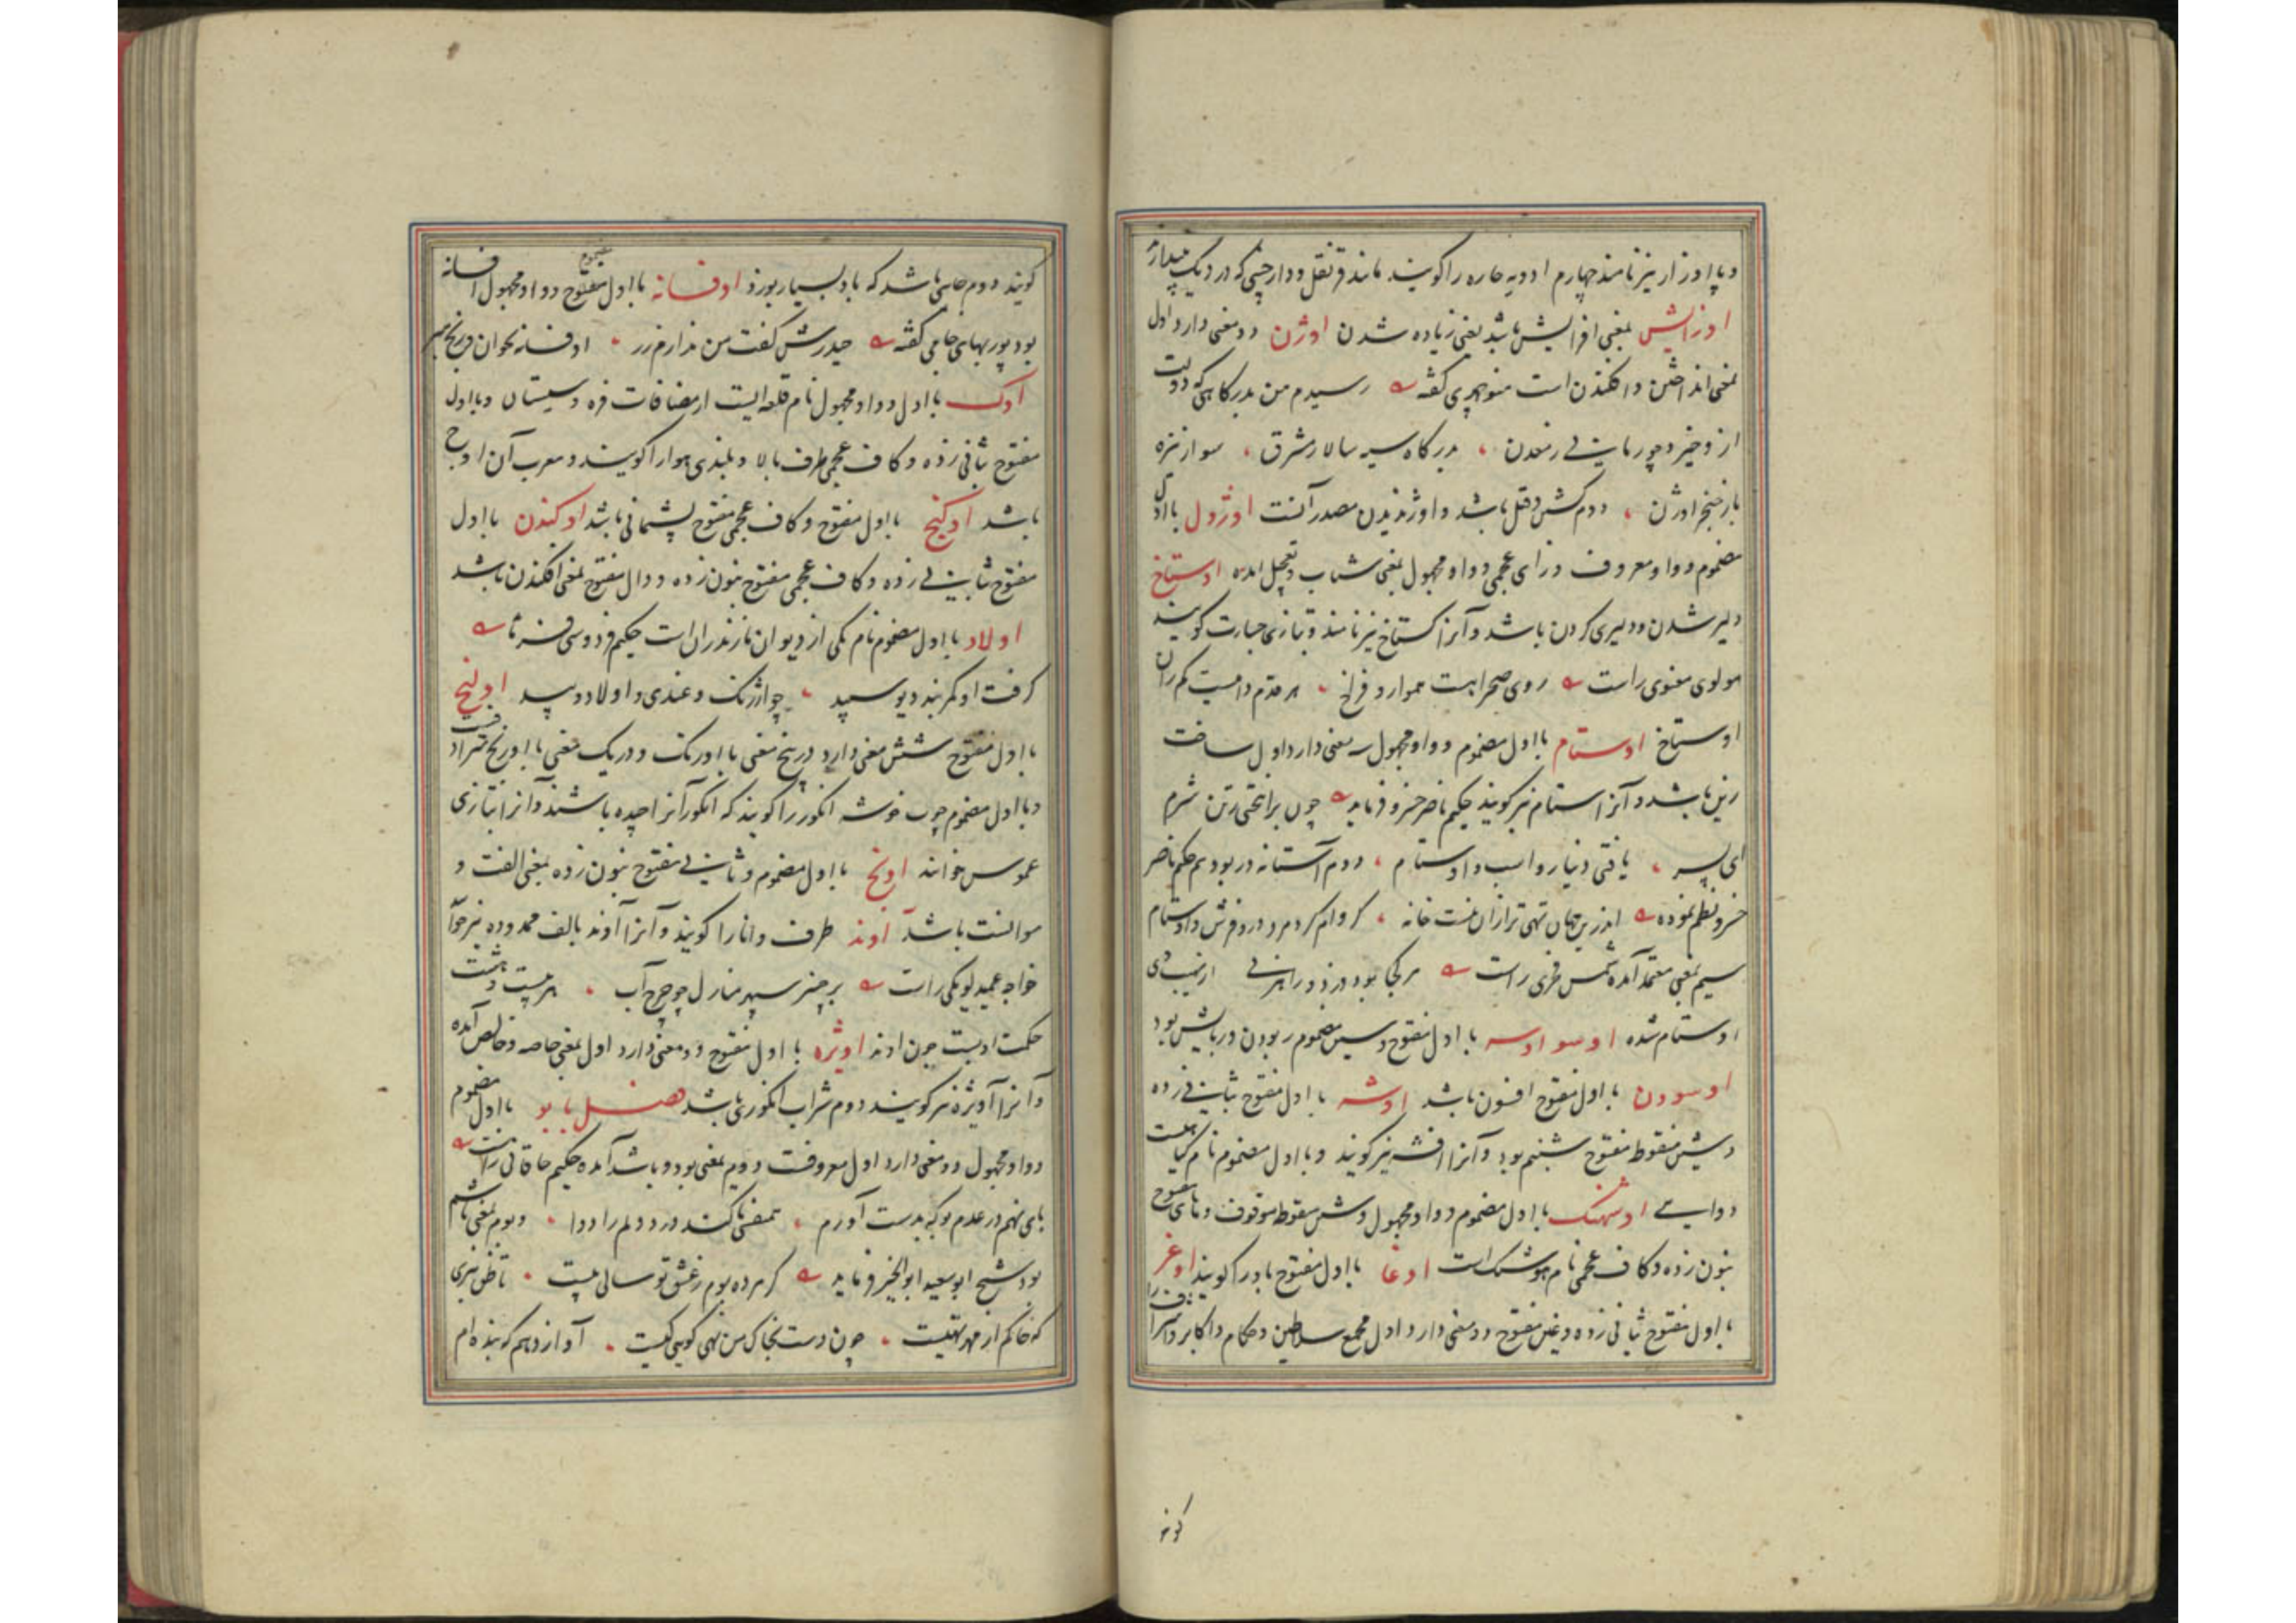 و پا اوزار نیز نامند چهارم ادویه حاره را گویند مانند قرنفل و دارچینی که در دیک
اوزایش بمعنی افزایش باشد یعنی زیاده شدن اوژن دو معنی دارد اول
بمعنی انداختن و افکندن است منوچهری گفته رسیدم من بدرکاهی که دولت
ازو خیزد چو رمانی ز معدن بدرکاه سپه سالار مشرق سوار نیزه
باز خنجر اوژن دوم کشش و قتل باشد و اوژندیدن مصدر آنست اوژول با اول
مضموم و واو معروف و زای عجمی و واو مجهول بمعنی شتاب و تعجیل آمده اوستاخ
دلیر شدن و دلیری کردن باشد و آنرا کستاخ نیز نامند و بتازی جسارت کویند
مولوی معنوی راست روی صحرا هست هموار و فراخ هر قدم دامیست کم ران
اوستاخ اوستام با اول مضموم و واو مجهول سه معنی دارد اول ساخت
زین باشد و آنرا استام نیز کویند حکیم ناصر خسرو فرماید چون برانتختی ز تن شرم
ای پسر یافتی دینار و اسب و اوستام دوم آستانه در بود هم حکیم ناصر
خسرو نظم نموده اندرین جهان تهی تر ازان نیست خانه کز وام کرد مرد درو فرش و اوستام
سیم بمعنی معتمد آمده شمس فخری راست هر کجا بود دزد و راهزنی از نهیب وی
اوستام شده اوسو اوسه با اول مفتوح و سین مضموم ربودن و ربایش بود
اوسودن با اول مفتوح افسون باشد اوشه با اول مفتوح بثانی زده
و شین منقوط مفتوح شبنم بود و آنرا افشه نیز کویند و با اول مضموم نام کیاهیست
دوایی اوشهنک با اول مضموم و واو مجهول و شین منقوط موقوف و های مفتوح
بنون زده و کاف عجمی نام هوشنک است اوغا با اول مفتوح باد را کویند اوغر
با اول مفتوح بثانی زده و غین مفتوح دو معنی دارد اول مجمع سلاطین و حکام و اکابر و اشراف را
کویند
کویند دوم جایی باشد که باد بسیار بوزد اوفسانه با اول مفتوح مضموم و واو مجهول افسانه
بود پور بهای جامی کفته حیدرش کفت من ندارم زر اوفسانه مخوان و رنج مبر
اوک با اول و واو مجهول نام قلعه ایست از مضافات فره و سیستان و با اول
مفتوح بثانی زده و کاف عجمی طرف بالا و بلندی هوا را کویند و معرب آن اوج
باشد اوکنج با اول مفتوح و کاف عجمی مفتوح پشیمانی باشد اوکندن با اول
مفتوح بثانی زده و کاف عجمی مفتوح بنون زده و دال مفتوح بمعنی افکندن باشد
اولاد با اول مضموم نام یکی از دیوان مازندران است حکیم فردوسی فرماید
کرفت او کمربند دیو سپید چو ارژنک و غندی و اولاد و بید اولنج
با اول مفتوح شش معنی دارد در پنج معنی با اورنک و در یک معنی با اورنج مترادف است
و با اول مضموم چوب خوشه انکور را کویند که انکور آنرا چیده باشند و آنرا بتازی
عموس خوانند اونج با اول مضموم و ثانی مفتوح بنون زده بمعنی الفت و
موانست باشد آوند ظرف و انا را کویند و آنرا آوند بالف ممدوده نیز خوانند
خواجه عمید لویکی راست بر چنبر سپهر منازل چو چرخ آب هر بیست و هشت
حکمت اوبست چون اوند اویژه با اول مفتوح دو معنی دارد اول بمعنی خاصه و خالص آمده
و آنرا آویژه نیز کویند دوم شراب انکوری باشد فصل با بو با اول مضموم
و واو مجهول دو معنی دارد اول معروفست دویم بمعنی بود و باشد آمده حکیم خاقانی راست
پای نهم در عدم بو که بدست آورم همنفسی تا کند درد دلم را دوا و بوم بمعنی باشم
بود شیخ ابو سعید ابو الخیر فرماید کر مرده بوم ز عشق تو سالی بیست تا ظن نبری
که خاکم از مهر تهیست چون دست بخاک من نهی کویی کیست آواز دهم که بنده ام